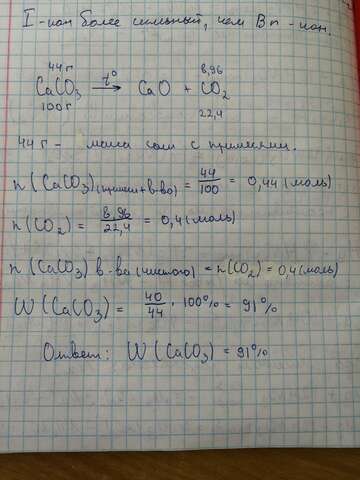 I-ион более сильный, чем Br-ион.
44г 8,96
CaCO₃ —t°→ CaO + CO₂
100г 22,4
44г - масса соли с примесями.
n(CaCO₃)(примеси+в-во) = 44/100 = 0,44 (моль)
n(CO₂) = 8,96/22,4 = 0,4 (моль)
n(CaCO₃) в-ва (чистого) = n(CO₂) = 0,4 (моль)
W(CaCO₃) = 40/44 · 100% = 91%
Ответ: W(CaCO₃) = 91%